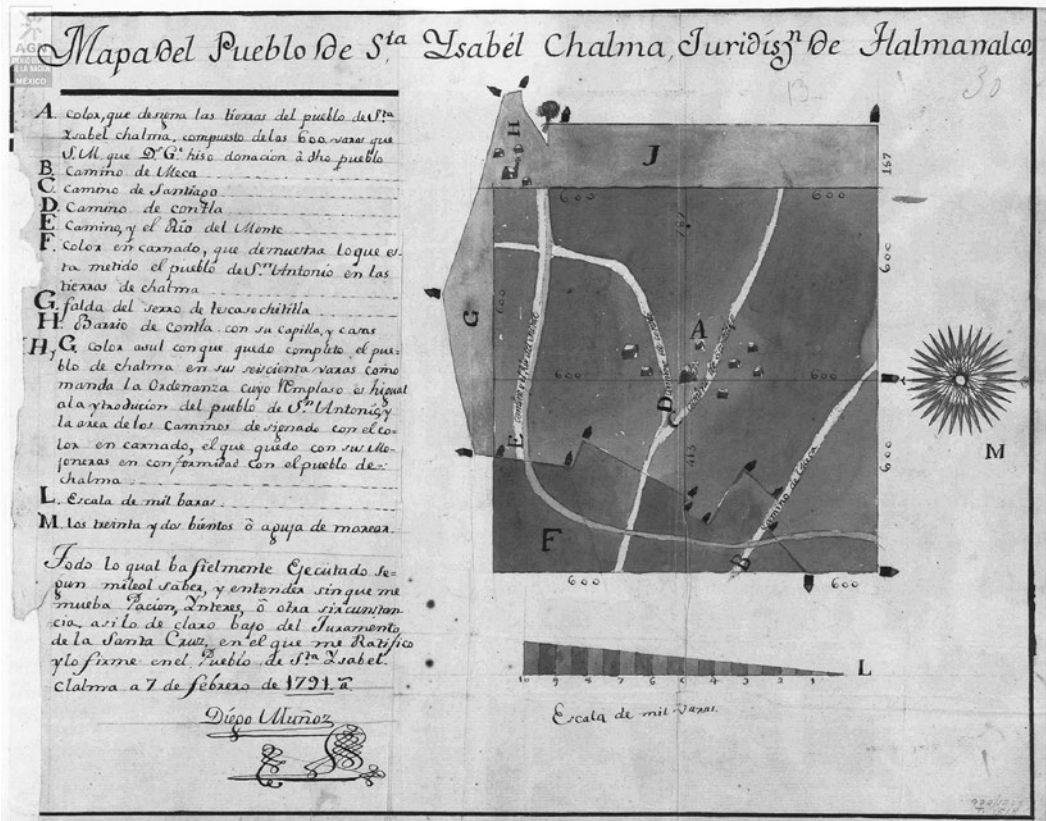 Mapa del Pueblo de S.ta Ysabél Chalma, Juridís.n de Tlalmanalco,
AGN
MÉXICO
13
30
A color, que desgna las tierras del pueblo de S.ta
Ysabel chalma, compuesto delas 600 varas que
S. M. que D.s G.e hiso donacion â dho pueblo
B. Camino de Meca
C. camino de Santiago
D. Camino de contla
E Camino, y el Río del Monte
F. color en carnado, que demuestra loque es-
ta metido el pueblo de S.n Antonio en las
tierras de chalma
G. falda del serro de tescasochitilla
H. Barrio de Contla con su capilla, y casas
H, y G. color asul con que quedo completo el pue-
blo de chalma en sus seiscienta varas como
manda la Ordenanza cuyo Remplaso es higual
ala ytroducion del pueblo de S.n Antonio, y
la area de los Caminos designado con el co-
lor en carnado, el que quedo con sus Mo-
joneras en conformidad con el pueblo de
chalma
L. Escala de mil baras.
M. los treinta y dos bientos ô aguja de marear.
Todo lo qual ba fielmente Ejecutado se-
gun mileal saber, y entender sin que me
mueba Pacion, Ynteres, ô otra sircunstan-
cia, asilo de claro bajo del Juramento
de la Santa Cruz, en el que me Ratifico
ylo firme en el Pueblo de S.ta Ysabel
Chalma a 7 de febrero de 1791. a.
Diego Muñoz
H
J
187
600
600
600
600
G
A
camino de Contla
600
600
D
C
E
M
413
600
camino de Meca
F
B
600
600
L
10 9 8 7 6 5 4 3 2 1
Escala de mil varas.